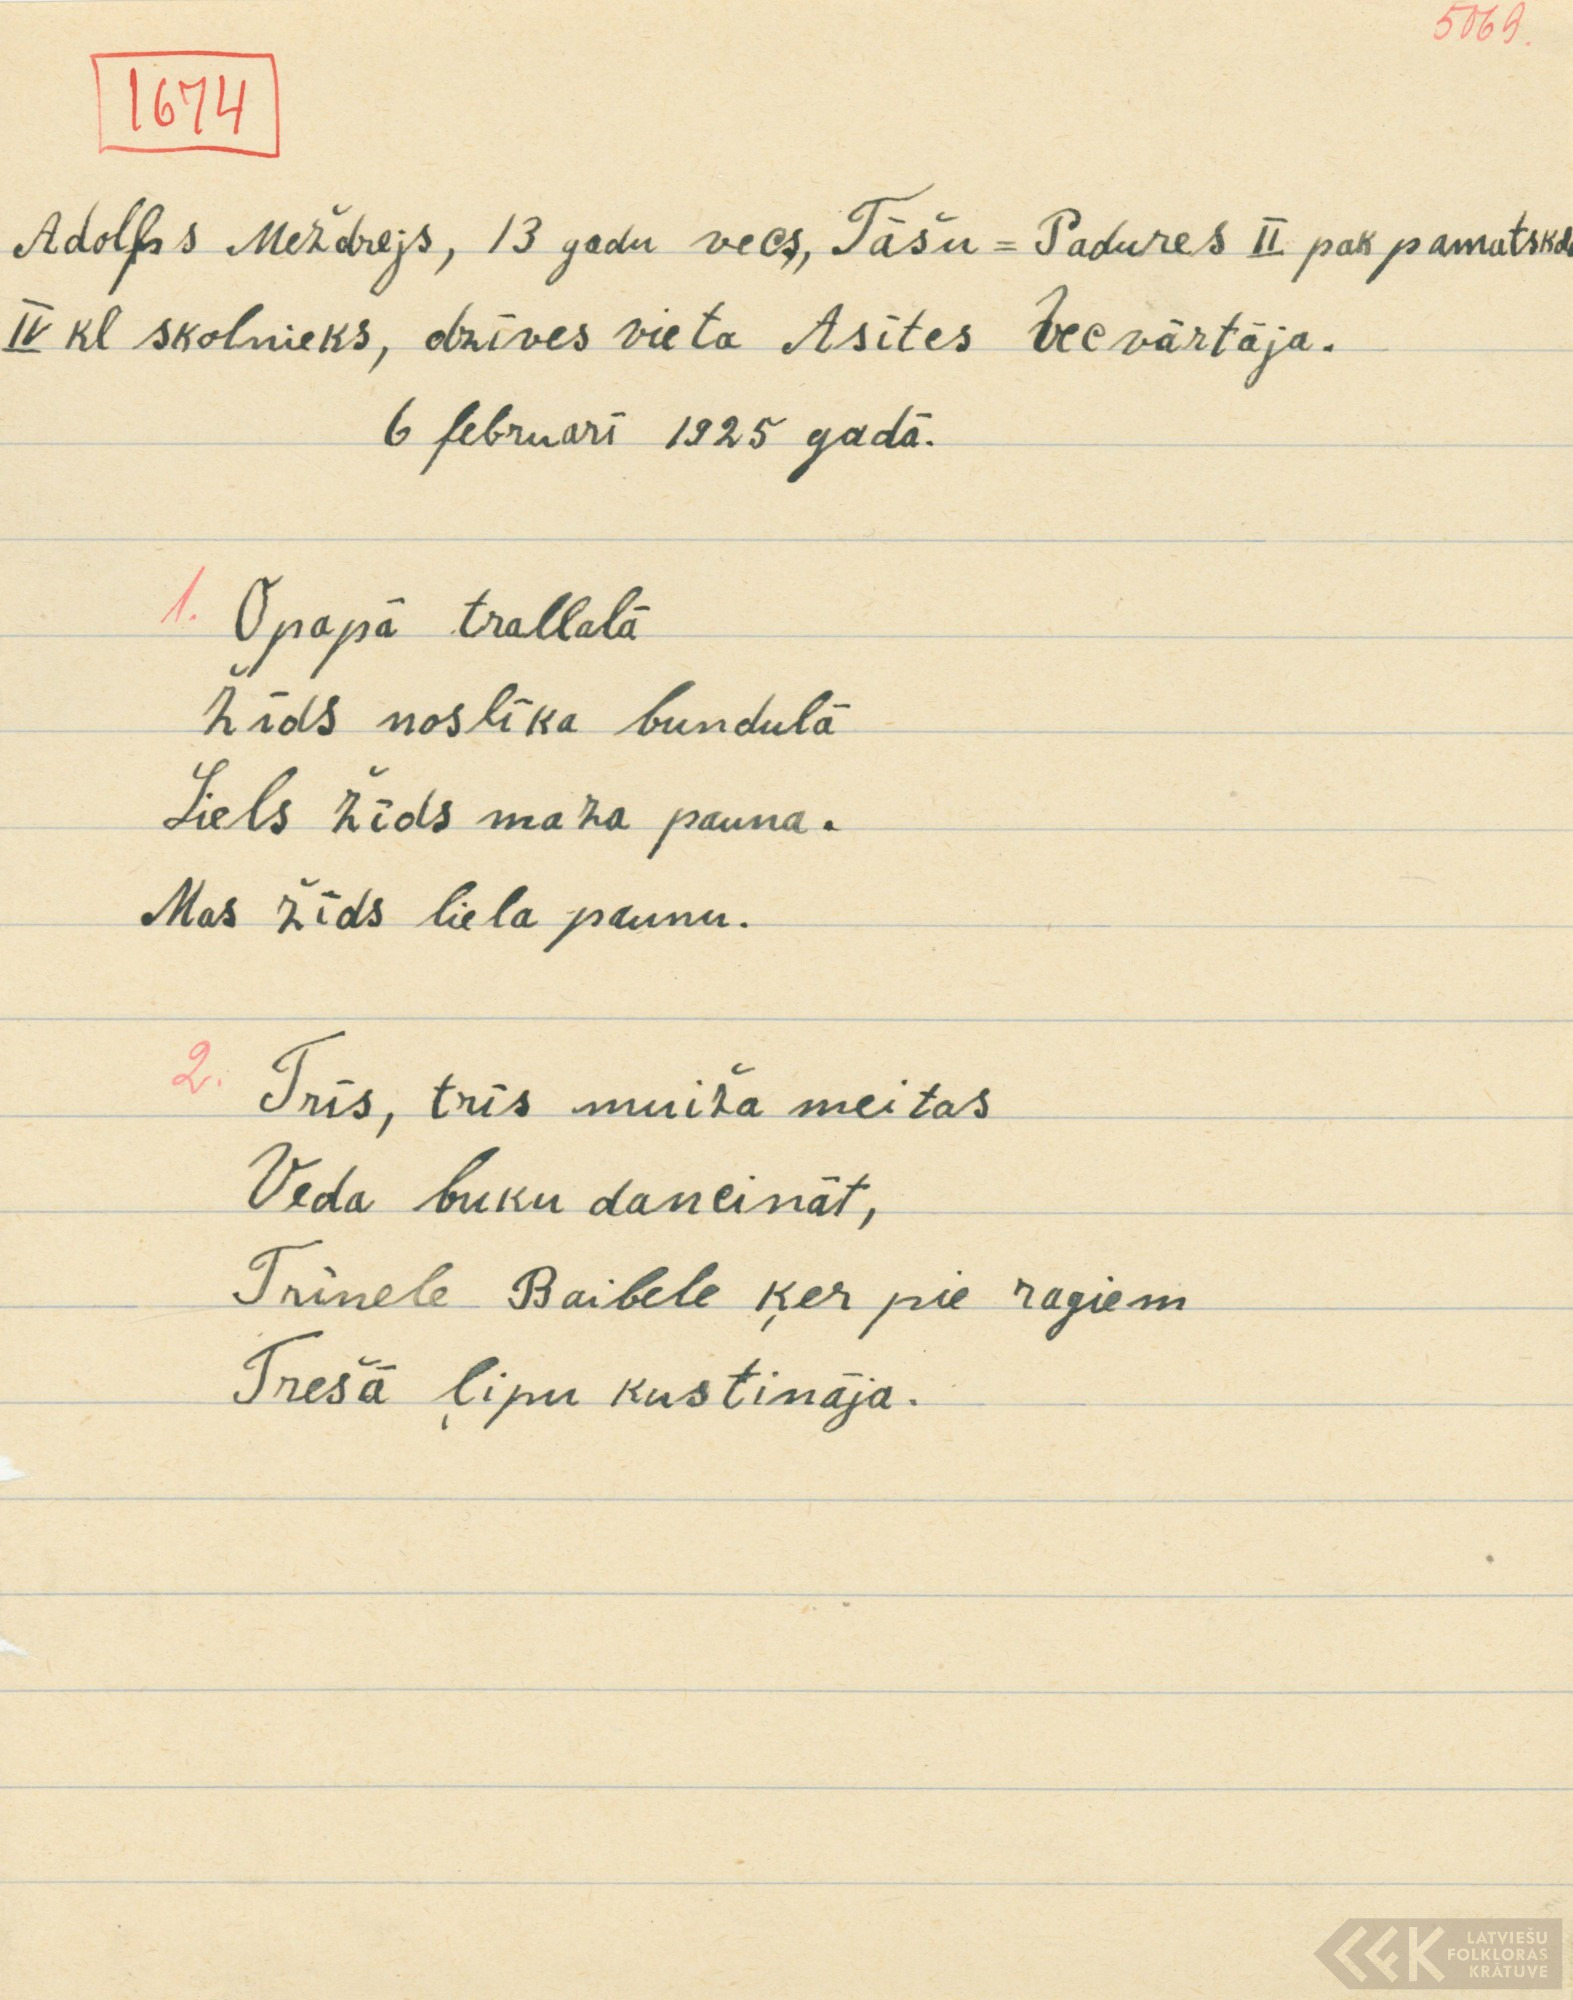 5069.
1674
Adolfs Meždrejs, 13 gadu vecs, Tāšu = Padures II pak pamatskol
IV kl skolnieks, dzīves vieta Asītes Vecvārtāja.
6 februarī 1925 gadā.
1. Opapā trallalā
Žīds noslīka bundulā
Liels žīds maza pauna.
Mas žīds liela paunu.
2. Trīs, trīs muiža meitas
Veda buku dancināt,
Trīnele Baibele ķer pie ragiem
Trešā ļipu kustināja.
LATVIEŠU
FOLKLORAS
KRĀTUVE